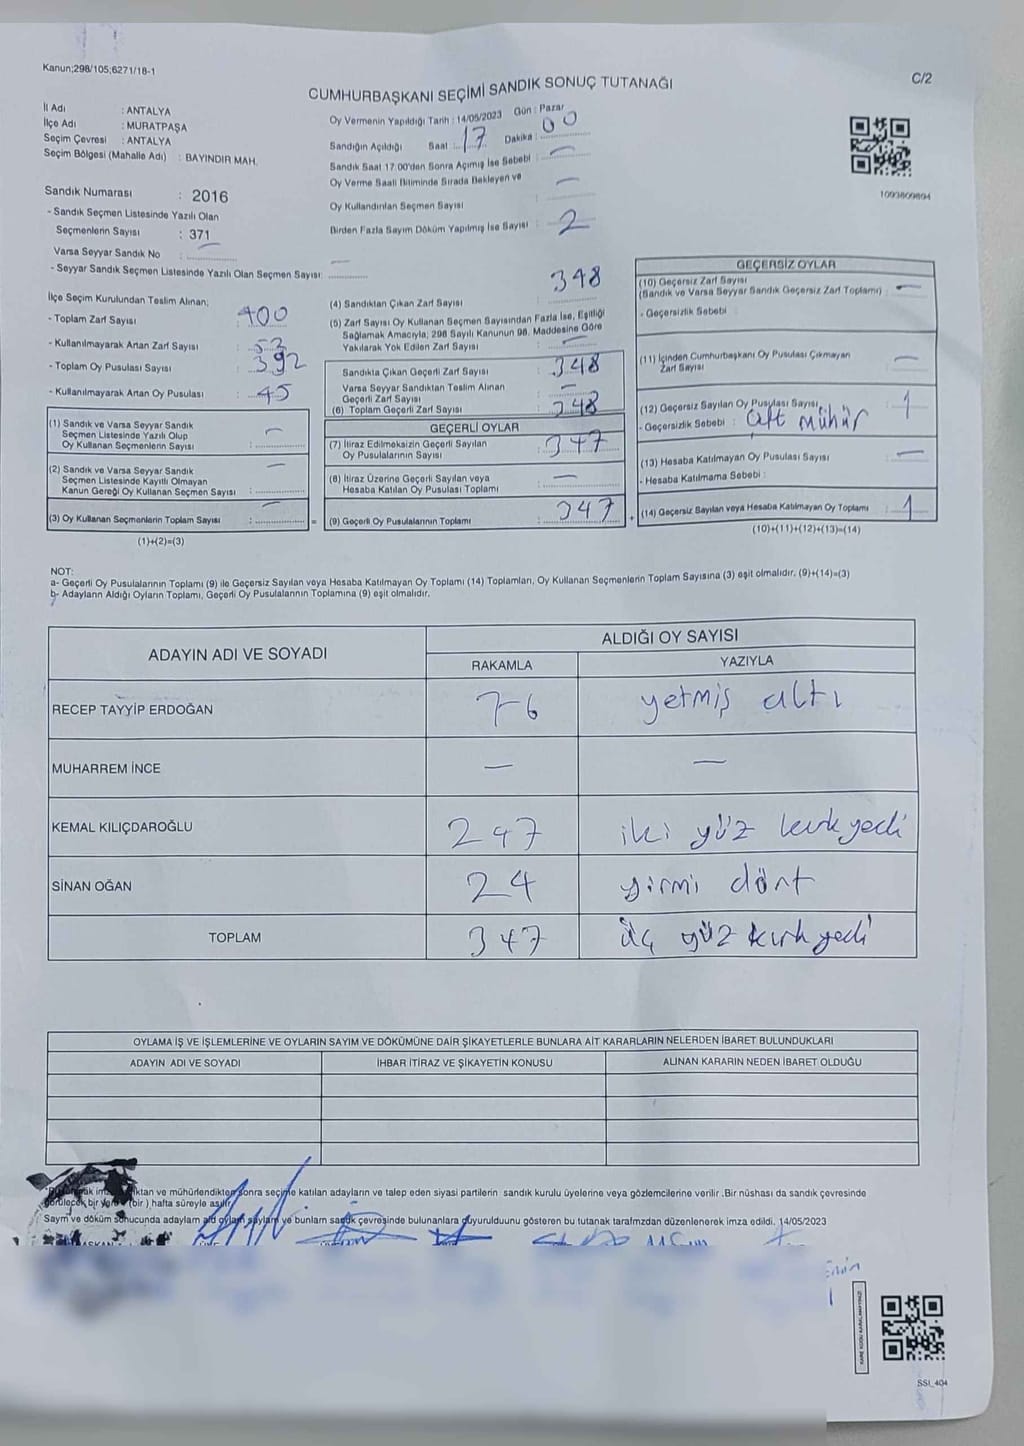 Kanun;298/105;6271/18-1
C/2
CUMHURBAŞKANI SEÇİMİ SANDIK SONUÇ TUTANAĞI
İl Adı : ANTALYA
İlçe Adı : MURATPAŞA
Seçim Çevresi : ANTALYA
Seçim Bölgesi (Mahalle Adı) : BAYINDIR MAH.
Oy Vermenin Yapıldığı Tarih : 14/05/2023 Gün : Pazar
Sandığın Açıldığı Saat : 17 Dakika : 00
Sandık Saat 17:00'den Sonra Açımış İse Sebebi : —
Oy Verme Saati Bitiminde Sırada Bekleyen ve
Oy Kullandırılan Seçmen Sayısı : —
Birden Fazla Sayım Döküm Yapılmış İse Sayısı : 2
1093809894
Sandık Numarası : 2016
- Sandık Seçmen Listesinde Yazılı Olan
Seçmenlerin Sayısı : 371
Varsa Seyyar Sandık No : —
- Seyyar Sandık Seçmen Listesinde Yazılı Olan Seçmen Sayısı: —
İlçe Seçim Kurulundan Teslim Alınan;
- Toplam Zarf Sayısı : 400
- Kullanılmayarak Artan Zarf Sayısı : 52
- Toplam Oy Pusulası Sayısı : 392
- Kullanılmayarak Artan Oy Pusulası : 45
(1) Sandık ve Varsa Seyyar Sandık
Seçmen Listesinde Yazılı Olup
Oy Kullanan Seçmenlerin Sayısı : —
(2) Sandık ve Varsa Seyyar Sandık
Seçmen Listesinde Kayıtlı Olmayan
Kanun Gereği Oy Kullanan Seçmen Sayısı : —
(3) Oy Kullanan Seçmenlerin Toplam Sayısı : — =
(1)+(2)=(3)
(4) Sandıktan Çıkan Zarf Sayısı : 348
(5) Zarf Sayısı Oy Kullanan Seçmen Sayısından Fazla İse, Eşitliği
Sağlamak Amacıyla; 298 Sayılı Kanunun 98. Maddesine Göre
Yakılarak Yok Edilen Zarf Sayısı : —
Sandıkta Çıkan Geçerli Zarf Sayısı : 348
Varsa Seyyar Sandıktan Teslim Alınan
Geçerli Zarf Sayısı : —
(6) Toplam Geçerli Zarf Sayısı : 348
GEÇERLİ OYLAR
(7) İtiraz Edilmeksizin Geçerli Sayılan
Oy Pusulalarının Sayısı : 347
(8) İtiraz Üzerine Geçerli Sayılan veya
Hesaba Katılan Oy Pusulası Toplamı : —
(9) Geçerli Oy Pusulalarının Toplamı : 347 +
GEÇERSİZ OYLAR
(10) Geçersiz Zarf Sayısı
(Sandık ve Varsa Seyyar Sandık Geçersiz Zarf Toplamı) : —
- Geçersizlik Sebebi :
(11) İçinden Cumhurbaşkanı Oy Pusulası Çıkmayan
Zarf Sayısı : —
(12) Geçersiz Sayılan Oy Pusulası Sayısı : 1
- Geçersizlik Sebebi : Çift mühür
(13) Hesaba Katılmayan Oy Pusulası Sayısı : —
- Hesaba Katılmama Sebebi :
(14) Geçersiz Sayılan veya Hesaba Katılmayan Oy Toplamı : 1
(10)+(11)+(12)+(13)=(14)
NOT:
a- Geçerli Oy Pusulalarının Toplamı (9) ile Geçersiz Sayılan veya Hesaba Katılmayan Oy Toplamı (14) Toplamları, Oy Kullanan Seçmenlerin Toplam Sayısına (3) eşit olmalıdır. (9)+(14)=(3)
b- Adayların Aldığı Oyların Toplamı, Geçerli Oy Pusulalarının Toplamına (9) eşit olmalıdır.
ADAYIN ADI VE SOYADI
ALDIĞI OY SAYISI
RAKAMLA YAZIYLA
RECEP TAYYİP ERDOĞAN 76 yetmiş altı
MUHARREM İNCE — —
KEMAL KILIÇDAROĞLU 247 iki yüz kırk yedi
SİNAN OĞAN 24 yirmi dört
TOPLAM 347 üç yüz kırk yedi
OYLAMA İŞ VE İŞLEMLERİNE VE OYLARIN SAYIM VE DÖKÜMÜNE DAİR ŞİKAYETLERLE BUNLARA AİT KARARLARIN NELERDEN İBARET BULUNDUKLARI
ADAYIN ADI VE SOYADI İHBAR İTİRAZ VE ŞİKAYETİN KONUSU ALINAN KARARIN NEDEN İBARET OLDUĞU
ve mühürlendikten sonra seçime katılan adayların ve talep eden siyasi partilerin sandık kurulu üyelerine veya gözlemcilerine verilir .Bir nüshası da sandık çevresinde
bir yere (bir ) hafta süreyle asılır
Sayım ve döküm sonucunda adayların ve bunların sandık çevresinde bulunanlara duyurulduunu gösteren bu tutanak tarafımzdan düzenlenerek imza edildi. 14/05/2023
SSI_404